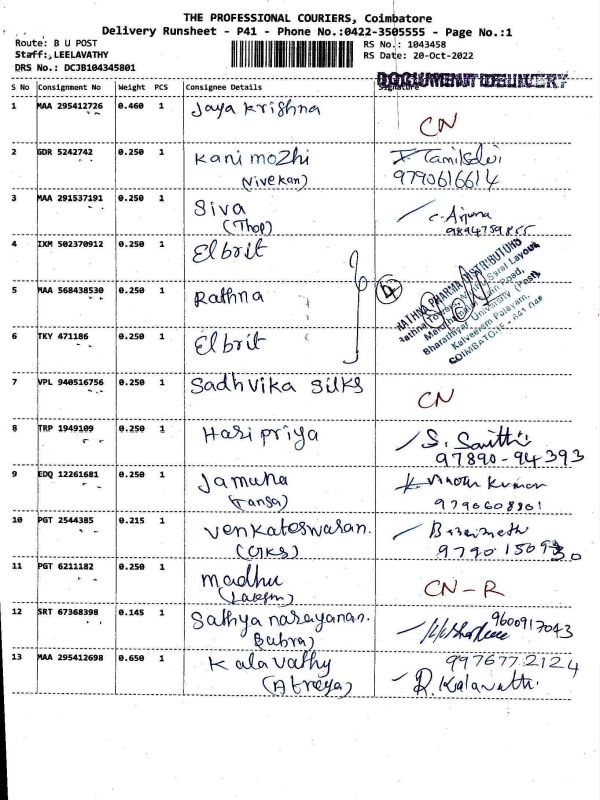 THE PROFESSIONAL COURIERS, Coimbatore
Delivery Runsheet - P41 - Phone No.:0422-3505555 - Page No.:1
Route: B U POST
RS No.: 1043458
Staff:,LEELAVATHY
RS Date: 20-Oct-2022
DRS No.: DCJB104345801
S No Consignment No Weight PCS Consignee Details Signature
1 MAA 295412726 0.460 1 Jaya Krishna
CN
2 GDR 5242742 0.250 1 Kani mozhi
9790616614
(Vivekan)
3 MAA 291537191 0.250 1 Siva
(Thop)
9894759855
4 IXM 502370912 0.250 1 Elbrit
5 MAA 568438530 0.250 1 Rathna
4
RATHNA PHARMA DISTRIBUTORS
Bharathiyar University (Post)
Kalveeram Palayam,
COIMBATORE - 641 046
6 TKY 471186 0.250 1 Elbrit
7 VPL 940516756 0.250 1 Sadhvika Silks
CN
8 TRP 1949109 0.250 1 Haripriya
97890-94393
9 EDQ 12261681 0.250 1 Jamuna
K. Vinoth Kumar
(Fansa)
10 PGT 2544385 0.215 1 Venkateswaran.
11 PGT 6211182 0.250 1 Madhu
CN-R
12 SRT 67368398 0.145 1 Sathya narayanan.
9600917043
(Babra)
13 MAA 295412698 0.650 1 Kalavathy
997677 2124
(Atreya)
R. Kalavathi.